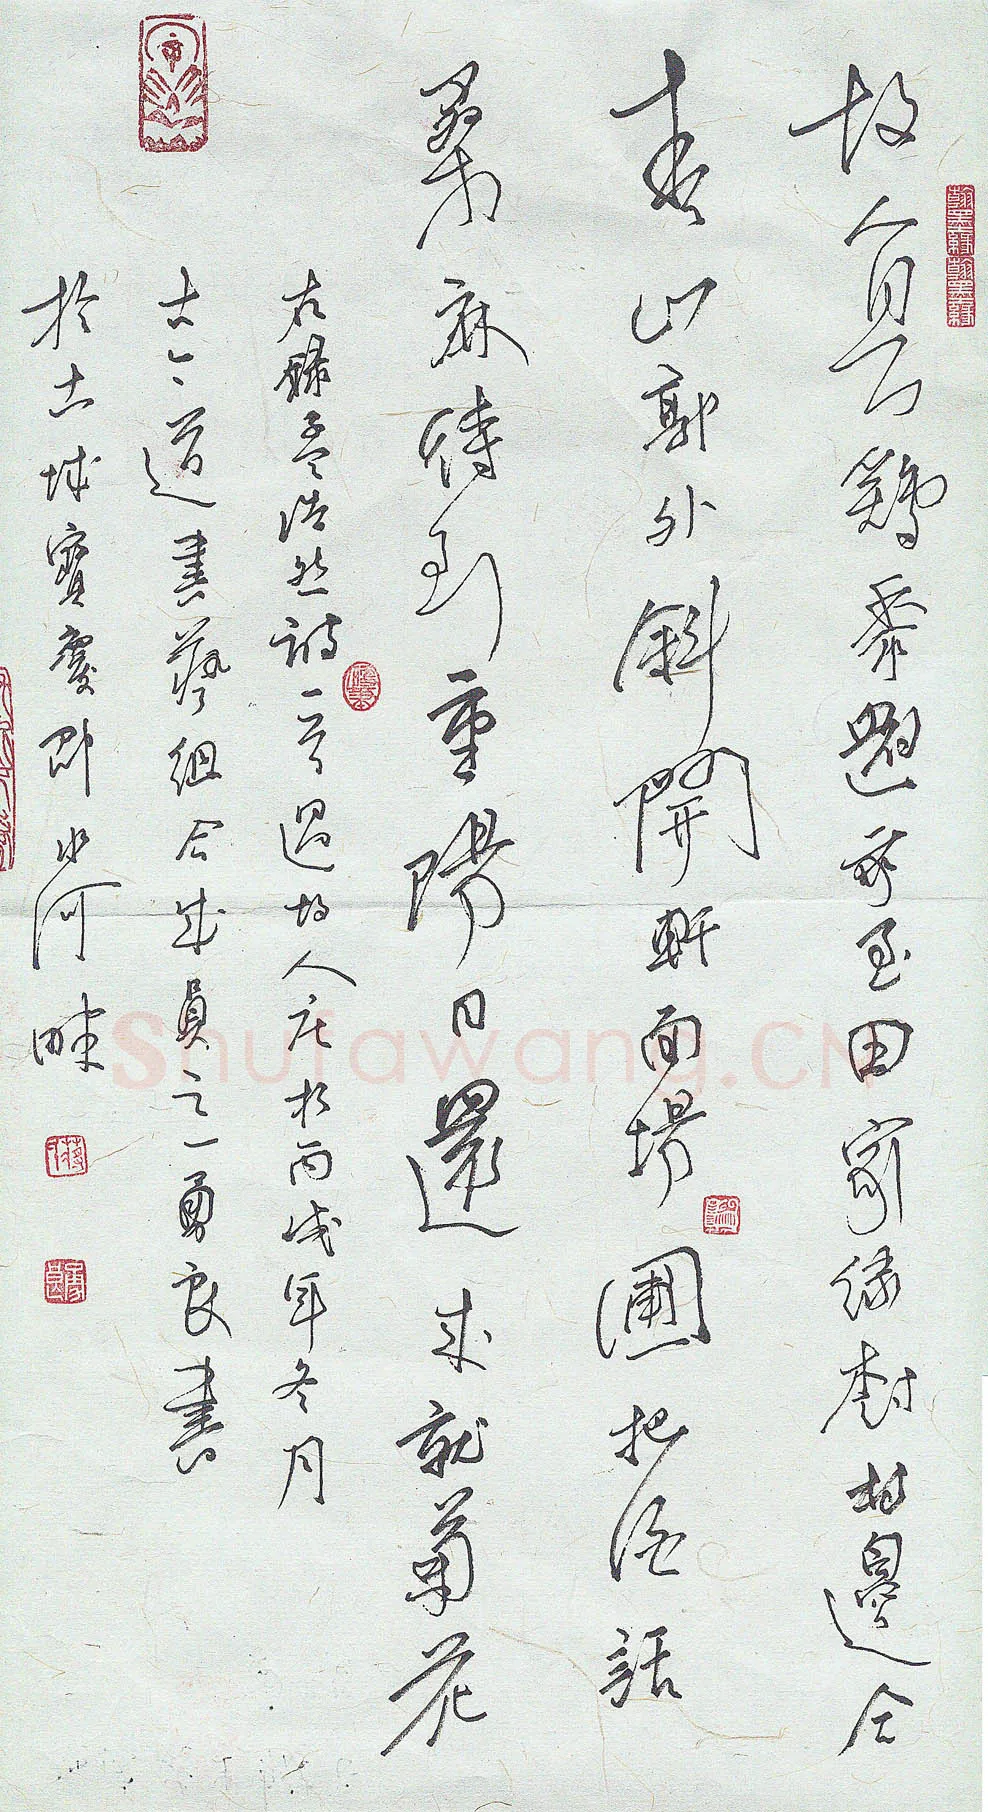 故人具鷄黍邀我至田家緑樹村邊合
青山郭外斜開軒面場圃把酒話
桑麻待到重陽日還來就菊花
右録孟浩然詩一首過故人庄於丙戌年冬月
古今道書藝組合成員之一勇良書
於古城寶慶郡水河畔
Shufawang.CN